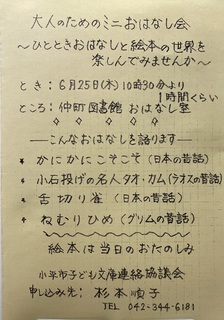 大人のためのミニおはなし会
～ひとときおはなしと絵本の世界を
楽しんでみませんか～
とき：6月25日(木)10時30分より
1時間くらい
ところ：仲町図書館 おはなし室
◇ ◇ ◇ ◇ ◇
―こんなおはなしを語ります―
★ かにかにこそこそ(日本の昔話)
★ 小石投げの名人タオ・カム(ラオスの昔話)
★ 舌切り雀(日本の昔話)
★ ねむりひめ(グリムの昔話)
絵本は当日のおたのしみ
小平市子ども文庫連絡協議会
申し込み先：杉本順子
TEL 042-344-6181